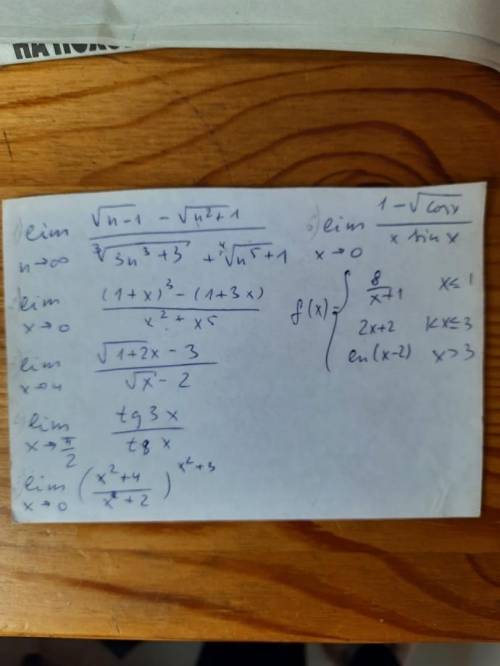 НА ПОЛО
1) lim n→∞ (√n-1 - √(n²+1)) / (∛(3n³+3) + ∜(n⁵+1))
lim x→0 ((1+x)³ - (1+3x)) / (x² + x⁵)
lim x→4 (√(1+2x) - 3) / (√x - 2)
4) lim x→π/2 tg3x / tg x
lim x→0 ((x²+4) / (x²+2))^(x²+3)
6) lim x→0 (1-√cosx) / (x sin x)
f(x) = { 8/(x+1) x≤1
2x+2 1<x≤3
ln(x-2) x>3